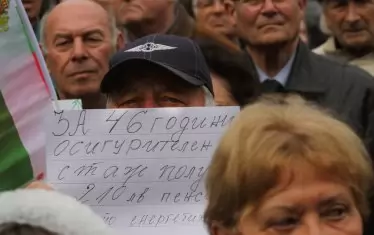 ЗА 46 години
осигурителен
стаж полу
210 лв пенс
енергети